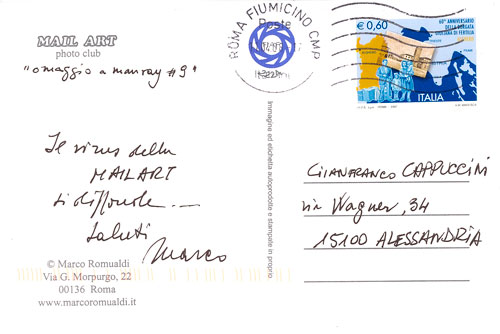 MAIL ART
photo club
"omaggio a manray #9"
Il virus della
MAIL ART
si diffonde ...
Saluti
Marco
© Marco Romualdi
Via G. Morpurgo, 22
00136 Roma
www.marcoromualdi.it
Immagine ed etichetta autoprodotte e stampate in proprio
ROMA FIUMICINO CMP
Poste
€ 0,60
60° ANNIVERSARIO
DELLA BORGATA
GIULIANA DI FERTILIA
ITALIA
GIANFRANCO CAPPUCCINI
via Wagner, 34
15100 ALESSANDRIA